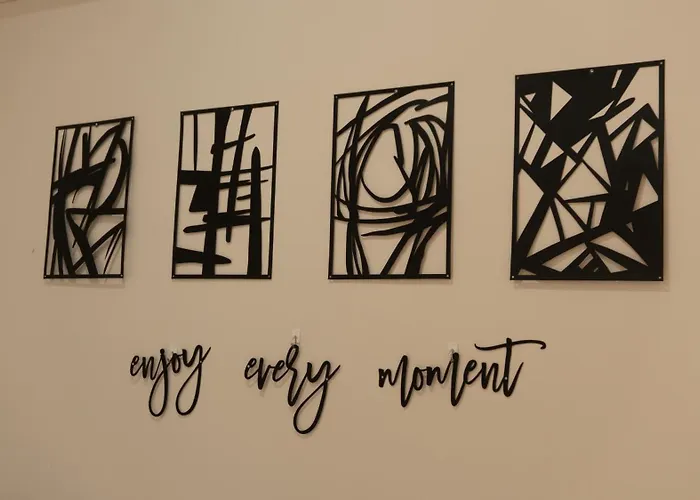 enjoy every moment